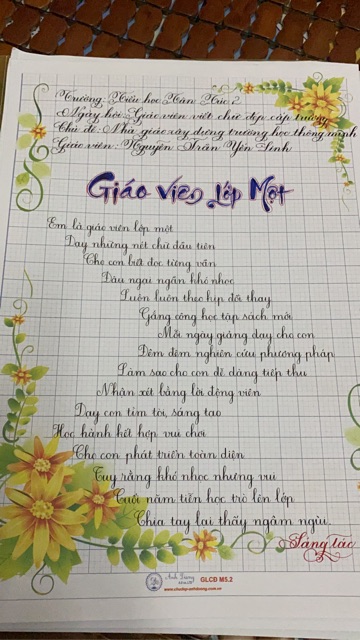 Trường: Tiểu học Tân Túc 2
Ngày hội: Giáo viên viết chữ đẹp cấp trường
Chủ đề: Nhà giáo xây dựng trường học thông minh
Giáo viên: Nguyễn Trần Yến Linh
Giáo viên Lớp Một
Em là giáo viên lớp một
Dạy những nét chữ đầu tiên
Cho con biết đọc tiếng vần
Dâu ngại ngần khó nhọc
Luôn luôn theo kịp đổi thay
Gắng công học tập sách mới
Mỗi ngày giảng dạy cho con
Đêm đêm nghiên cứu phương pháp
Làm sao cho con dễ dàng tiếp thu
Nhận xét bằng lời động viên
Dạy con tìm tòi, sáng tạo
Học hành kết hợp vui chơi
Cho con phát triển toàn diện
Tuy rằng khó nhọc nhưng vui
Cuối năm tiễn học trò lên lớp
Chia tay lại thấy ngậm ngùi.
Sáng tác
Ánh Dương
GLCĐ M5.2